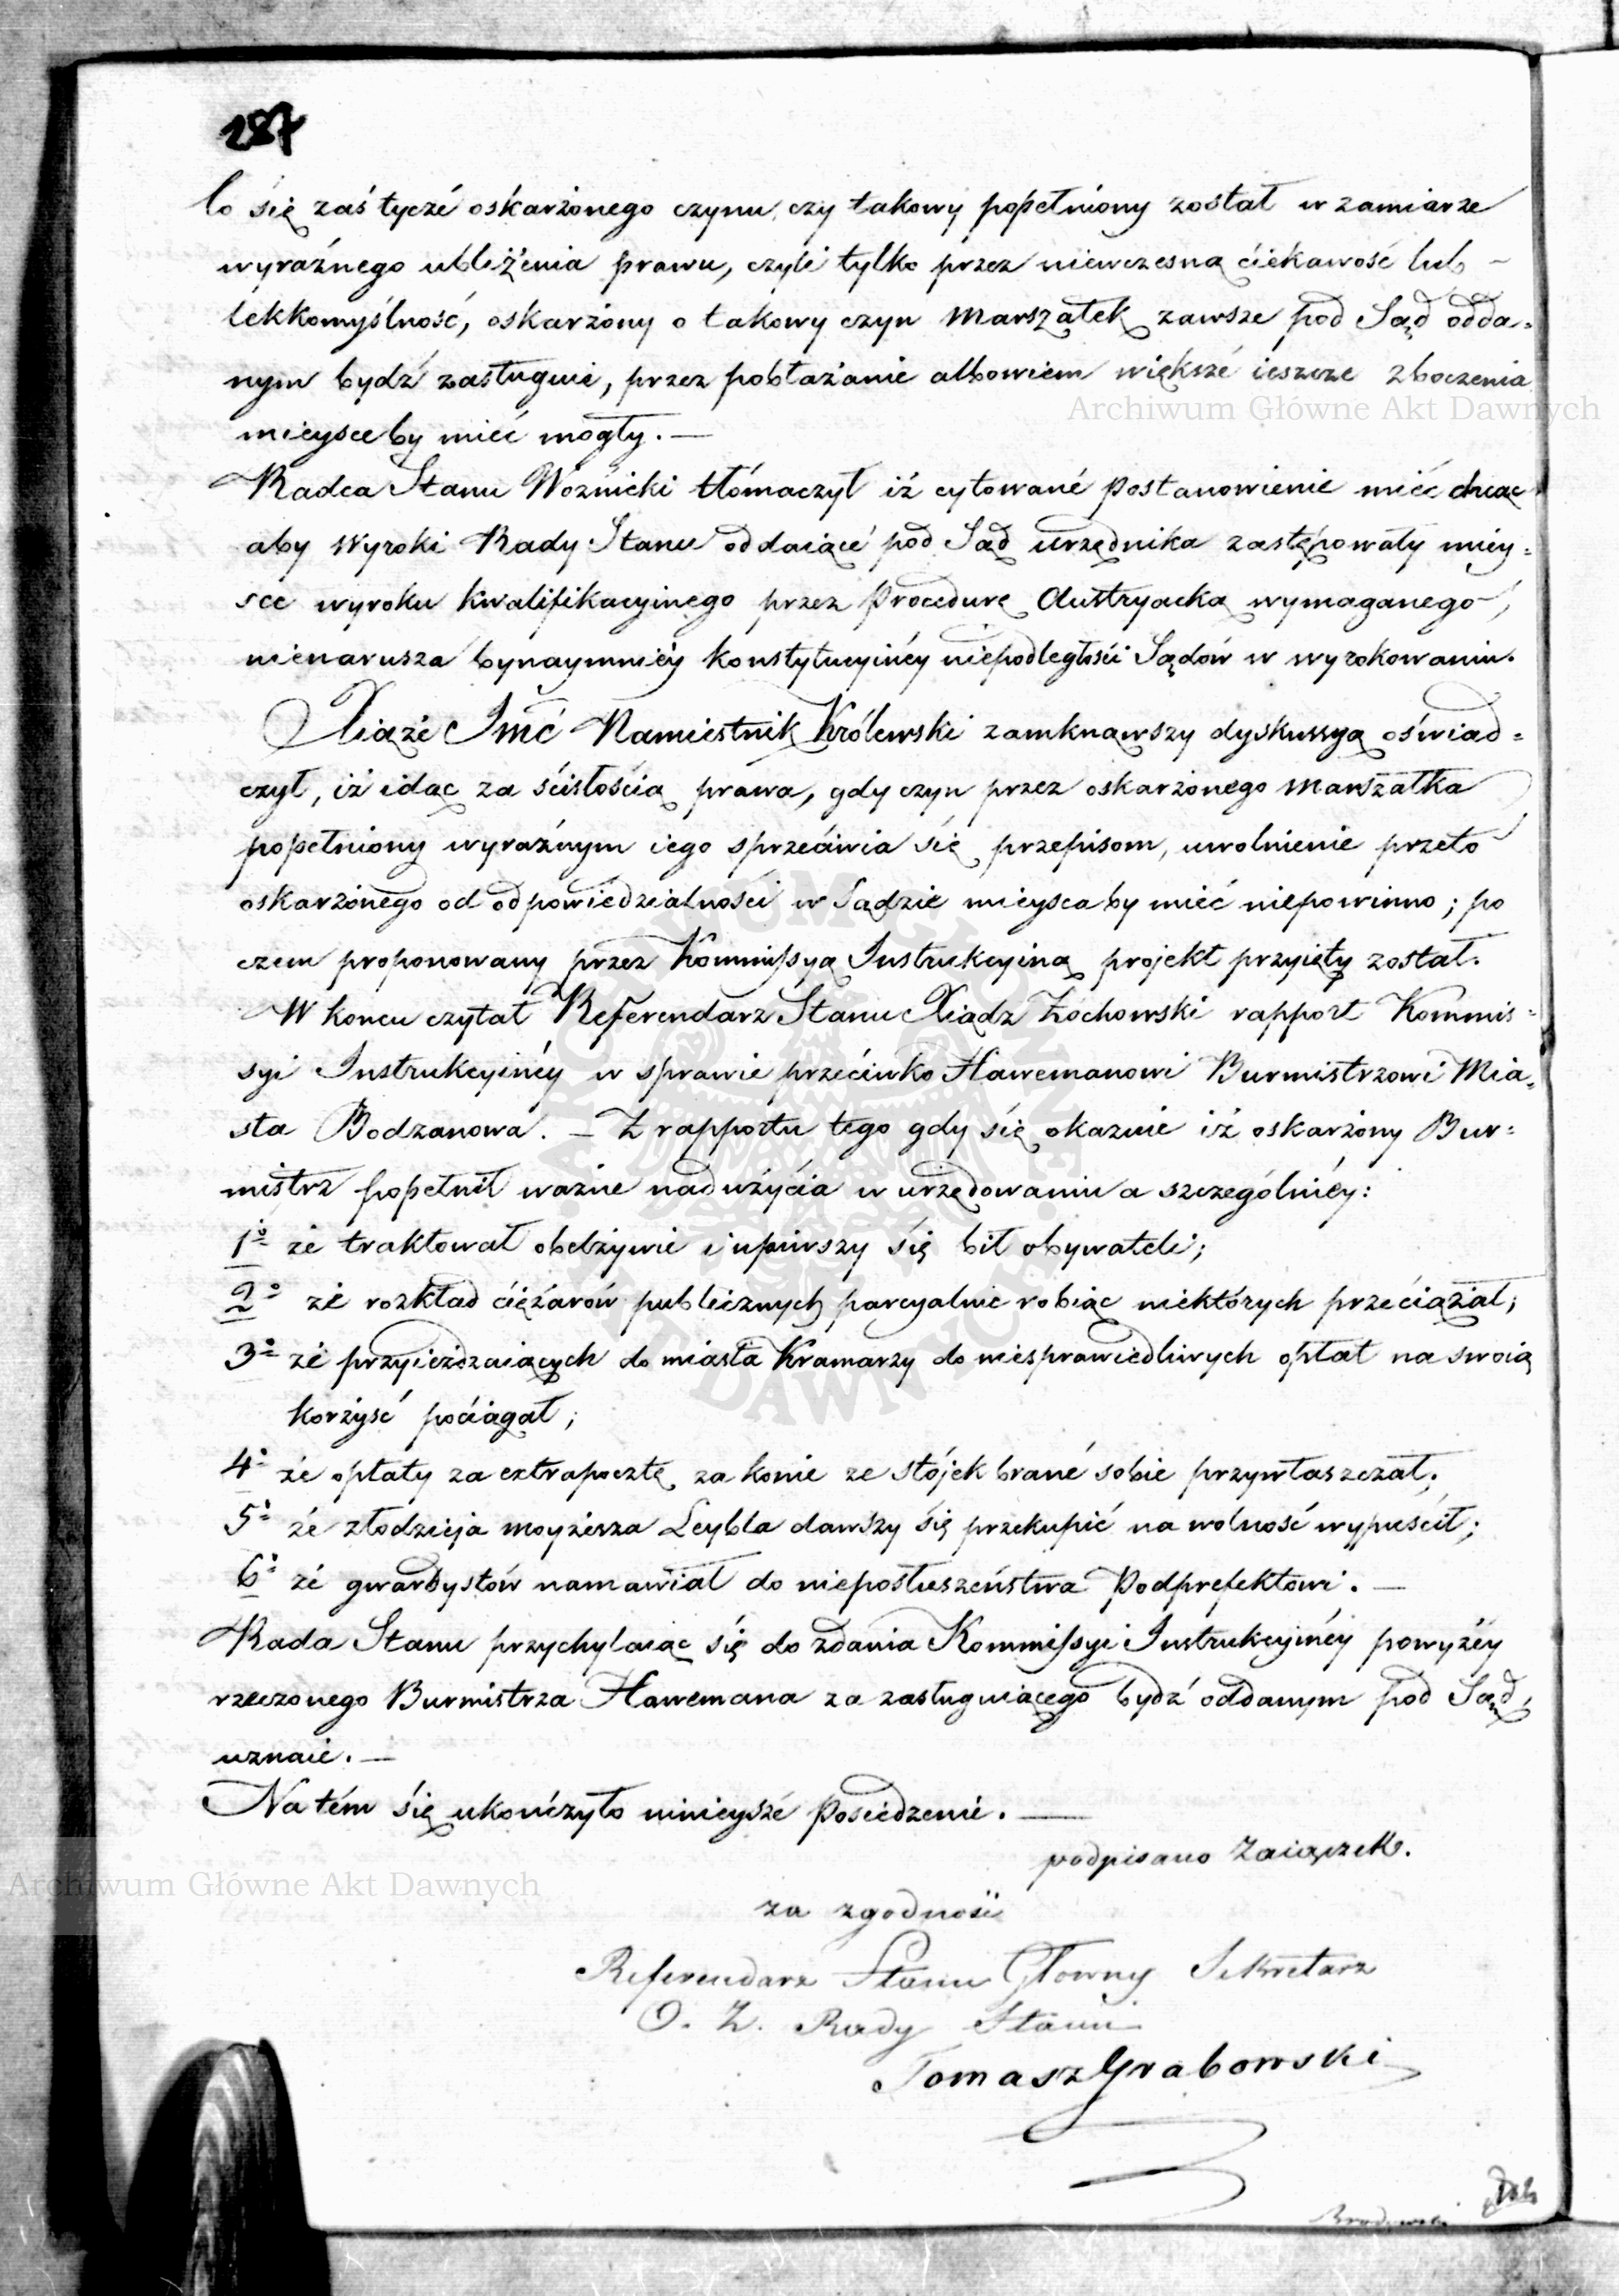 287
Co się zaś tycze oskarżonego czynu, czy takowy popełniony został w zamiarze
wyraźnego ubliżenia prawu, czyli tylko przez niewczesną ciekawość lub –
lekkomyślność, oskarżony o takowy czyn Marszałek zawsze pod Sąd odda=
nym bydź zasługuie, przez pobłażanie albowiem większe ieszcze zboczenia
mieysceby mieć mogły. —
Radca Stanu Woznicki tłómaczył iż cytowané postanowienie mieć chcąc
aby wyroki Rady Stanu oddaiącé pod Sąd urzędnika zastępowały miey=
sce wyroku kwalifikacyinego przez Procedurę Austryacką wymaganego,
nienarusza bynaymniéy konstytucyinéy niepodległości Sądów w wyrokowaniu.
Xiąże Jmć Namiestnik Królewski zamknąwszy dyskussyą oświad=
czył, iż idąc za ścisłością prawa, gdy czyn przez oskarżonego Marszałka
popełniony wyraźnym iego sprzeciwia się przepisom, uwolnienie przeto
oskarżonego od odpowiedzialności w Sądzie mieyscaby mieć niepowinno; po
czem proponowany przez Kommissyą Instrukcyiną projekt przyięty został.
W koncu czytał Referendarz Stanu Xiądz Żochowski rapport Kommis=
syi Instrukcyinéy w sprawie przeciwko Hawemanowi Burmistrzowi Mia=
sta Bodzanowa. – Z rapportu tego gdy się okazuie iż oskarżony Bur=
mistrz popełnił ważne nadużycia w urzędowaniu a szczególniéy:
1º że traktował obelżywie i upiwszy się bił obywateli;
2º że rozkład ciężarów publicznych parcyalnie robiąc niektórych przeciążał;
3º że przyieżdzaiących do miasta Kramarzy do niesprawiedliwych opłat na swoią
korzyść pociągał;
4º że opłaty za extrapocztę za konie ze stójek brané sobie przywłaszczał;
5º że złodzieja moyżesza Leybla dawszy się przekupić na wolność wypuścił;
6º że gwardystów namawiał do nieposłuszeństwa Podprefektowi. —
Rada Stanu przychylaiąc się do zdania Kommissyi Instrukcyinéy powyżéy
rzeczonego Burmistrza Hawemana za zasługuiącego bydź oddanym pod Sąd,
uznaie. —
Na tém się ukończyło ninieyszé Posiedzenie. —
podpisano Zaiączek.
za zgodność
Referendarz Stanu Głowny Sekretarz
O. Z. Rady Stanu
Tomasz Grabowski
Archiwum Główne Akt Dawnych
Archiwum Główne Akt Dawnych
ARCHIWUM GŁÓWNE
AKT DAWNYCH